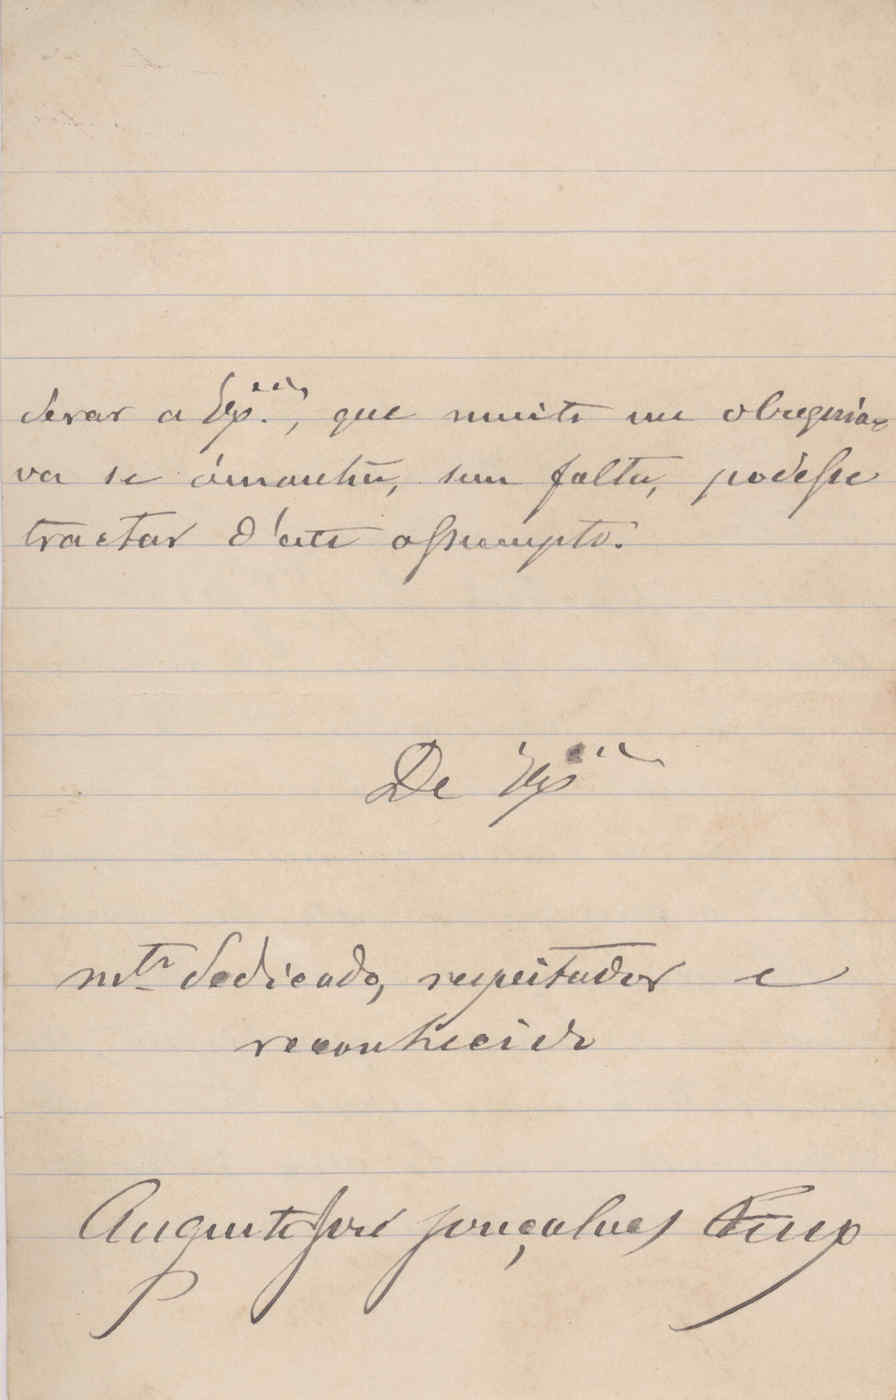 derar a Ex.cia, que muito me obsequia-
va se ámanhã, sem falta, podesse
tractar d'este assumpto.
De Excia
mto dedicado, respeitador e
reconhecido
Augusto José Gonçalves